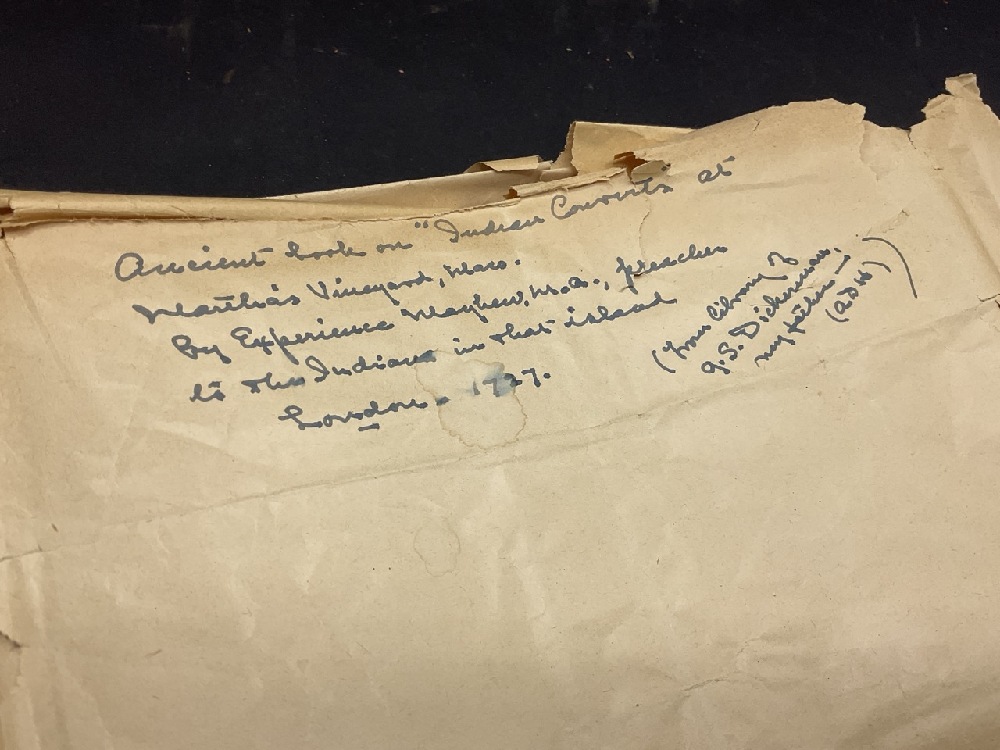 Ancient book on "Indian Converts" at
Martha's Vineyard, Mass.
by Experience Mayhew, M.A., preacher
to the Indians in that island
London - 1727.
(From library of
G. S. Dickerman,
my father —
(ADH))